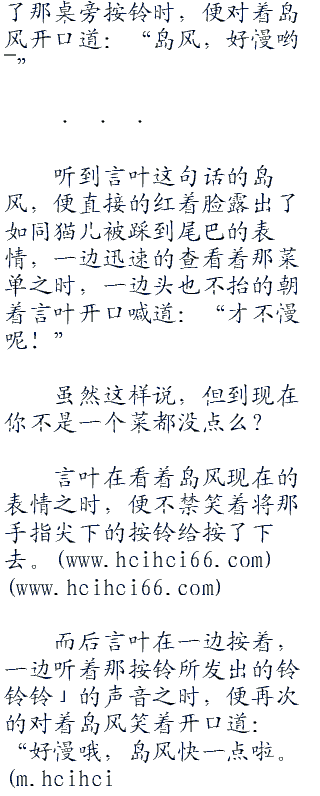 了那桌旁按铃时，便对着岛
风开口道：“岛风，好漫哟
~”
．．．
听到言叶这句话的岛
风，便直接的红着脸露出了
如同猫儿被踩到尾巴的表
情，一边迅速的查看着那菜
单之时，一边头也不抬的朝
着言叶开口喊道：“才不慢
呢！”
虽然这样说，但到现在
你不是一个菜都没点么？
言叶在看着岛风现在的
表情之时，便不禁笑着将那
手指尖下的按铃给按了下
去。(www.hcihci66.com)
(www.hcihci66.com)
而后言叶在一边按着，
一边听着那按铃所发出的铃
铃铃」的声音之时，便再次
的对着岛风笑着开口道：
“好漫哦，岛风快一点啦。
(m.hcihci